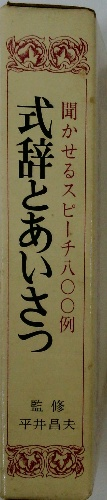 聞かせるスピーチ八〇〇例
式辞とあいさつ
監修
平井昌夫